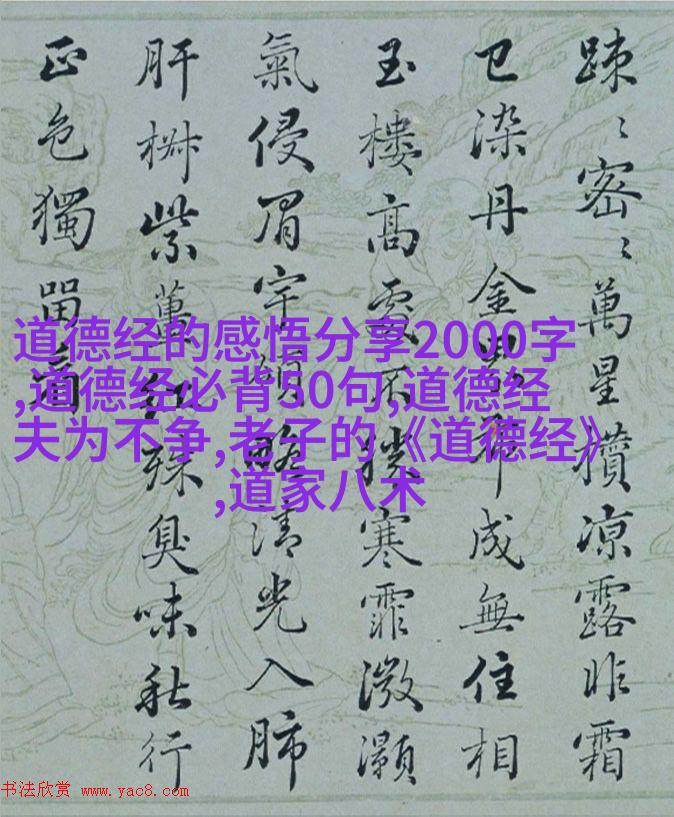 踈〻密〻萬星攢凉露昨霜
已染丹金布成無住相
玉樓高處不勝寒霏微灝
氣侵眉宇領略清光入肺
肝紫紅殊臭味秋行
正色獨留道
道德经的感悟分享2000字
,道德经必背50句,道德经
夫为不争,老子的《道德经》
,道家八术
书法欣赏 www.yac8.com